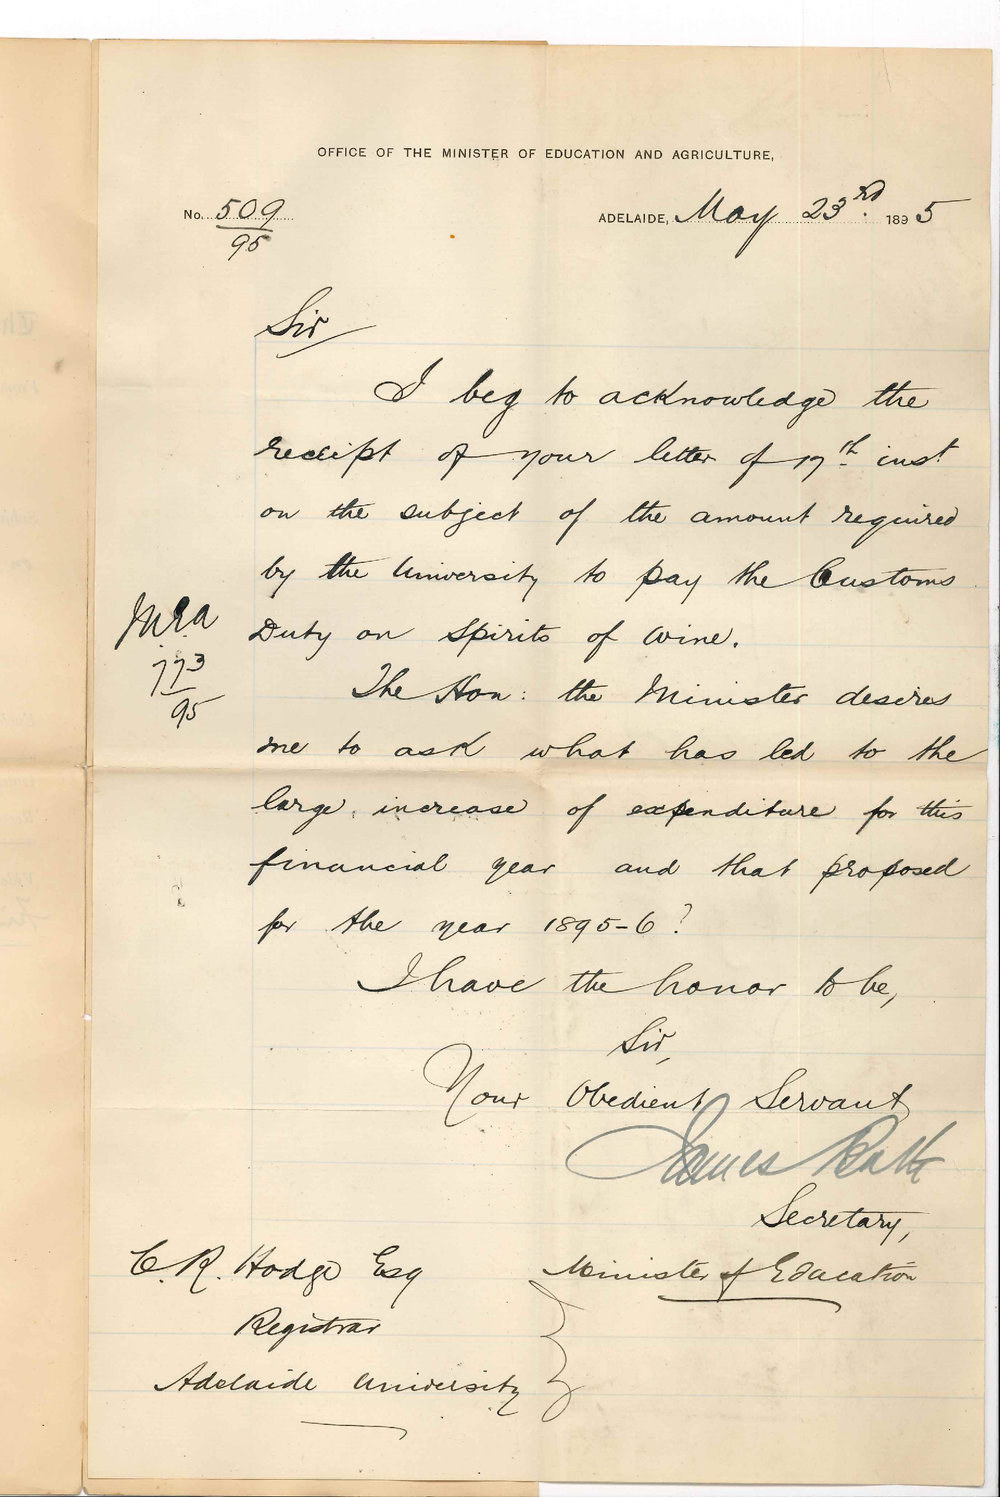 OFFICE OF THE MINISTER OF EDUCATION AND AGRICULTURE,
No. 509
95
ADELAIDE, May 23rd. 1895
Sir
I beg to acknowledge the
receipt of your letter of 17th inst
on the subject of the amount required
by the University to pay the Customs
Duty on Spirits of Wine.
MEA
773
95
The Hon: the Minister desires
me to ask what has led to the
large increase of expenditure for this
financial year and that proposed
for the year 1895-6?
I have the honor to be,
Sir,
Your Obedient Servant
James Bath
Secretary,
Minister of Education
C. R. Hodge Esq
Registrar
Adelaide University